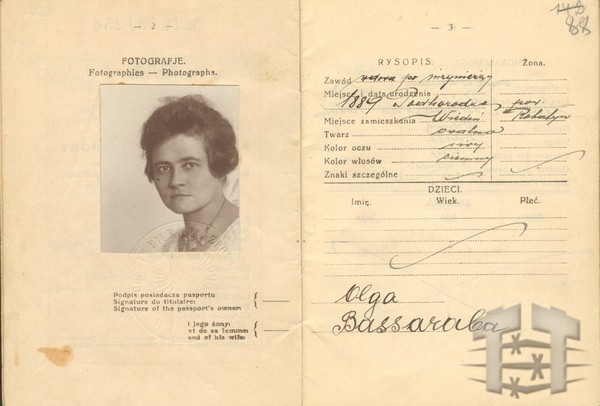 — 2 —
FOTOGRAFJE.
Fotographies — Photographs.
Podpis posiadacza pasportu
Signature du titulaire:
Signature of the passport's owner:
i jego żony:
et de sa femme:
and of his wife:
— 3 —
88
RYSOPIS. Żona.
Zawód wdowa po inżynierze
Miejsce i data urodzenia
1889 pow.
Miejsce zamieszkania Wiedeń
Twarz owalna
Kolor oczu siwy
Kolor włosów ciemny
Znaki szczególne
DZIECI.
Imię. Wiek. Płeć.
Olga
Bassaraba